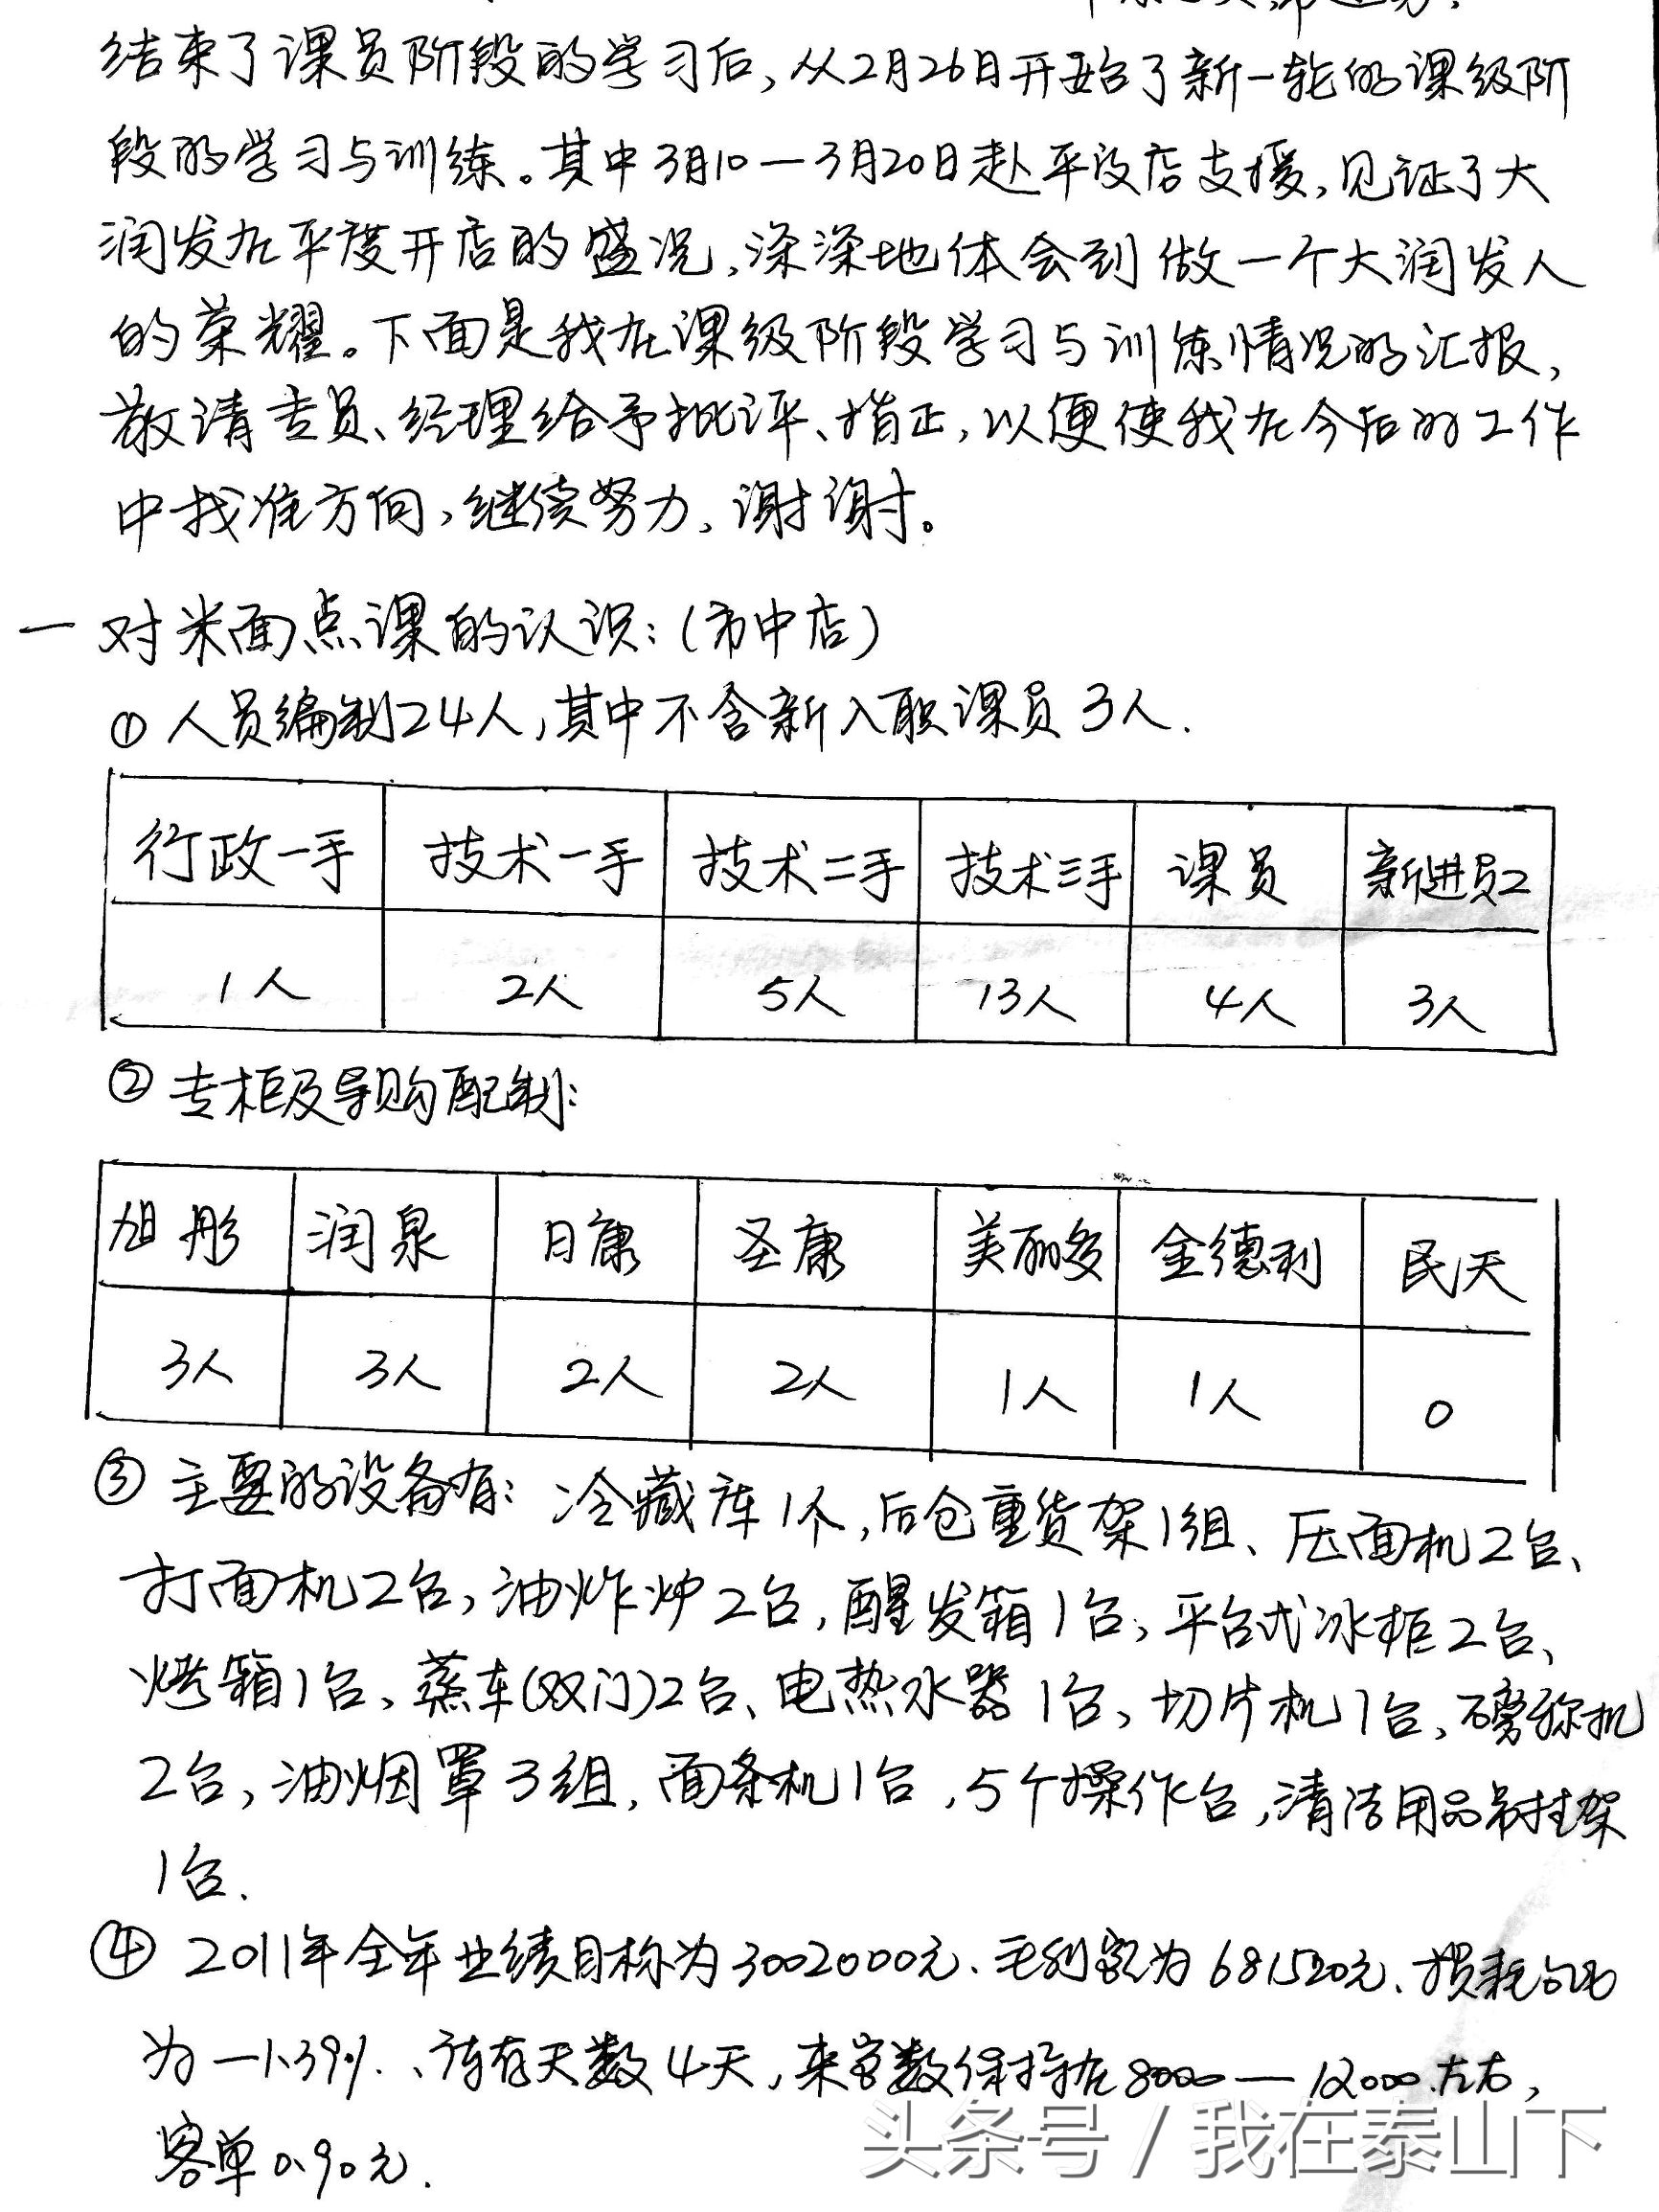 结束了课员阶段的学习后,从2月26日开始了新一轮的课级阶
段的学习与训练。其中3月10—3月20日赴平度店支援,见证了大
润发在平度开店的盛况,深深地体会到做一个大润发人
的荣耀。下面是我在课级阶段学习与训练情况的汇报,
敬请专员、经理给予批评、指正,以便使我在今后的工作
中找准方向,继续努力,谢谢。
一 对米面点课的认识:(市中店)
① 人员编制24人,其中不含新入职课员3人.
行政一手 技术一手 技术二手 技术三手 课员 新进员2
1人 2人 5人 13人 4人 3人
② 专柜及导购配制:
旭彤 润泉 日康 圣康 美丽多 金德利 民天
3人 3人 2人 2人 1人 1人 0
③ 主要的设备有: 冷藏库1个,后仓重货架1组、压面机2台、
打面机2台,油炸炉2台,醒发箱1台,平台式冰柜2台、
烤箱1台,蒸车(双门)2台、电热水器1台,切片机1台,磅称机
2台,油烟罩3组,面条机1台,5个操作台,清洁用品吊挂架
1台.
④ 2011年全年业绩目标为3002000元、毛利额为681520元、损耗
为—1.39%.、库存天数4天,来客数保持在8000—12000左右,
客单0.90元.
头条号 / 我在泰山下